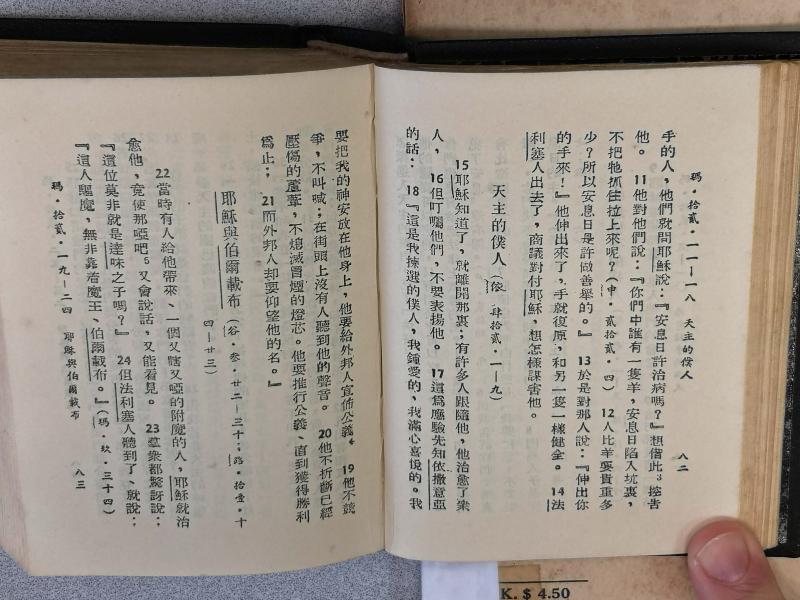 瑪・拾貳・一一—一八 天主的僕人 八二
手的人，他們就問耶穌說：『安息日許治病嗎？』想借此控告
他。 11他對他們說：『你們中誰有一隻羊，安息日陷入坑裏，
不把牠抓住拉上來呢？（申・貳拾貳・四） 12人比羊要貴重多
少？所以安息日是許做善舉的。』 13於是對那人說：『伸出你
的手來！』他伸出來了，手就復原，和另一隻一樣健全。 14法
利塞人出去了，商議對付耶穌，想怎樣謀害他。
天主的僕人（依・肆拾貳・一—九）
15耶穌知道了，就離開那裏；有許多人跟隨他，他治愈了衆
人， 16但叮囑他們，不要表揚他。 17這爲應驗先知依撒意亞
的話： 18『這是我揀選的僕人，我鍾愛的，我滿心喜悅的。我
要把我的神安放在他身上，他要給外邦人宣佈公義。 19他不競
爭，不叫喊；在街頭上沒有人聽到他的聲音。 20他不折斷已經
壓傷的蘆葦，不熄滅冒煙的燈芯。他要推行公義、直到獲得勝利
爲止； 21而外邦人却要仰望他的名。』
耶穌與伯爾載布（谷・叁・廿二—三十；路・拾壹・十
四—廿三）
22當時有人給他帶來、一個又瞎又啞的附魔的人，耶穌就治
愈他，竟使那啞吧又會說話，又能看見。 23羣衆都驚訝說：
『這位莫非就是達味之子嗎？』 24但法利塞人聽到了、就說：
『這人驅魔，無非靠着魔王、伯爾載布。』（瑪・玖・三十四）
瑪・拾貳・一九—二四 耶穌與伯爾載布 八三
K. $ 4.50